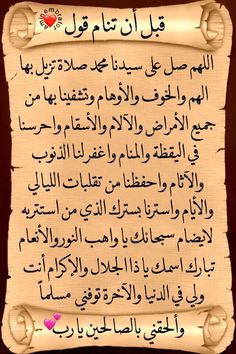 قبل أن تنام قول
اللهم صل على سيدنا محمد صلاة تزيل بها
الهم والخوف والأوهام وتشفينا بها من
جميع الأمراض والآلام والأسقام واحرسنا
في اليقظة والمنام واغفر لنا الذنوب
والآثام واحفظنا من تقلبات الليالي
والأيام واسترنا بسترك الذي من استتر به
لايضام سبحانك يا واهب النور والأنعام
تبارك اسمك يا ذا الجلال والإكرام أنت
ولي في الدنيا والآخرة توفني مسلماً
وألحقني بالصالحين يا رب